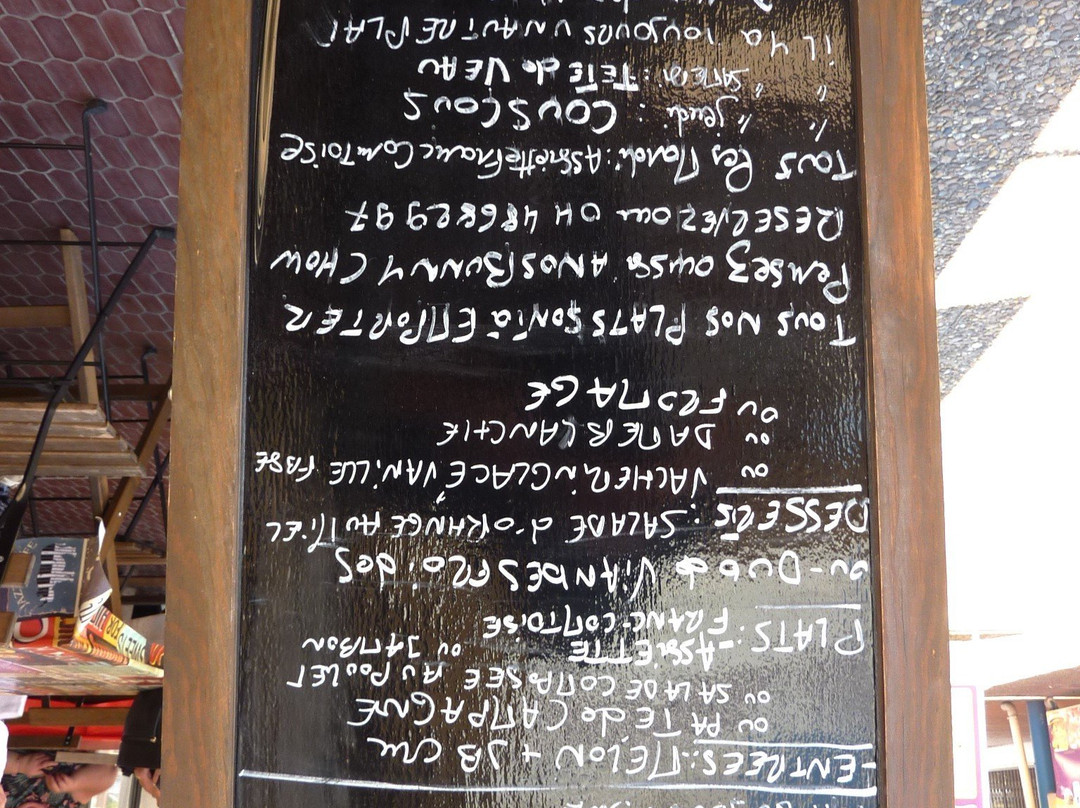 -ENTREES: MELON + JB CRU
ou PATE de CAMPAGNE
ou SALADE COMPOSEE AU POULET
ou JAMBON
PLATS: -ASSIETTE
FRANC-COMTOISE
ou - DUO de VIANDES FROIDES
DESSERTS: SALADE d'ORANGE AU MIEL
ou VACHERIN GLACE VANILLE
ou DAME BLANCHE
ou FROMAGE
TOUS NOS PLATS SONT à EMPORTER
Pensez aussi A NOS BUNNY CHOW
RESERVEZ au 04 48682997
Tous les Mardi: Assiette Franc Comtoise
" " jeudi: COUSCOUS
" " SAMEDI: TETE de VEAU
il y a TOUJOURS UN AUTRE PLAT